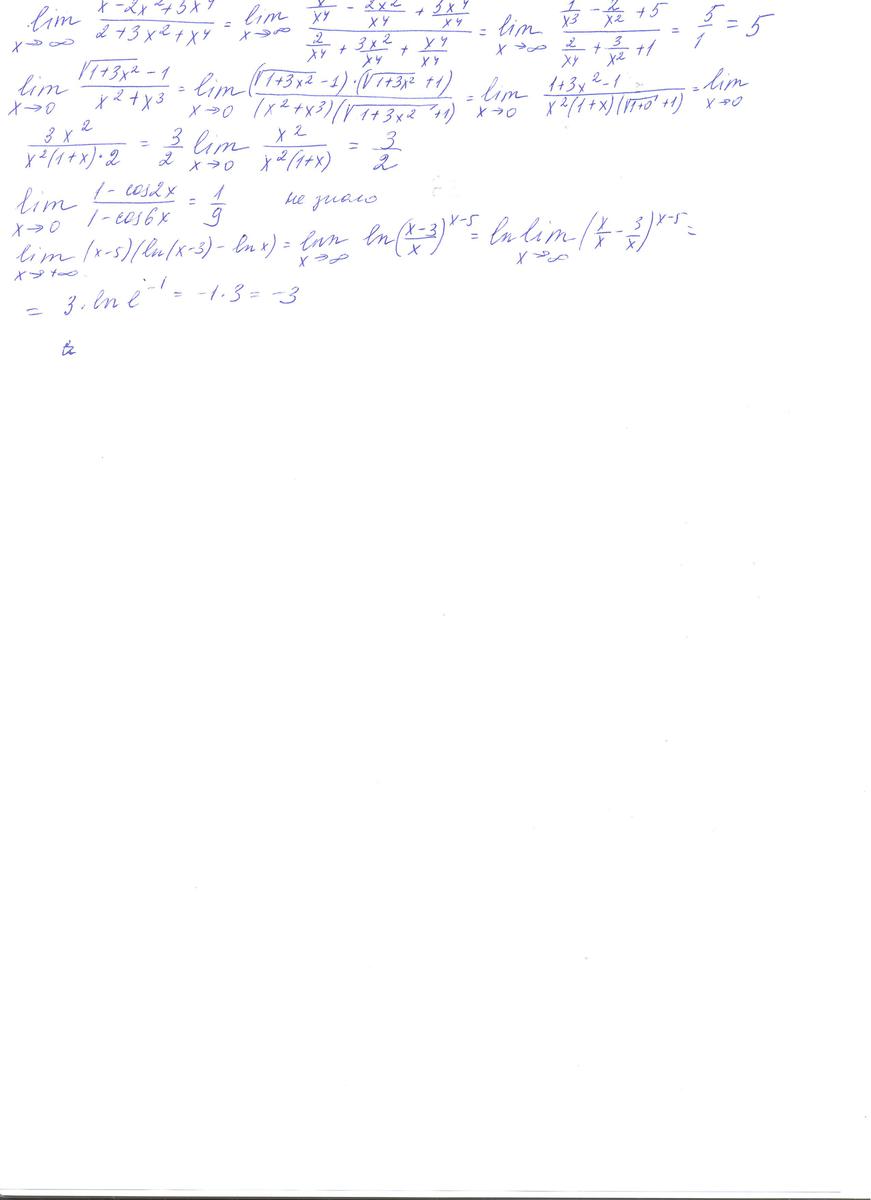 lim x→∞ (x-2x²+5x⁴)/(2+3x²+x⁴) = lim x→∞ (x/x⁴ - 2x²/x⁴ + 5x⁴/x⁴)/(2/x⁴ + 3x²/x⁴ + x⁴/x⁴) = lim x→∞ (1/x³ - 2/x² + 5)/(2/x⁴ + 3/x² + 1) = 5/1 = 5
lim x→0 (√(1+3x²) - 1)/(x² + x³) = lim x→0 ((√(1+3x²) - 1)·(√(1+3x²) + 1))/((x²+x³)(√(1+3x²) + 1)) = lim x→0 (1+3x²-1)/(x²(1+x)(√(1+0) + 1)) = lim x→0
3x²/(x²(1+x)·2) = 3/2 lim x→0 x²/(x²(1+x)) = 3/2
lim x→0 (1 - cos2x)/(1 - cos6x) = 1/9 не знаю
lim x→+∞ (x-5)(ln(x-3) - lnx) = lim x→∞ ln((x-3)/x)^(x-5) = ln lim x→∞ (x/x - 3/x)^(x-5) =
= 3·ln e^(-1) = -1·3 = -3